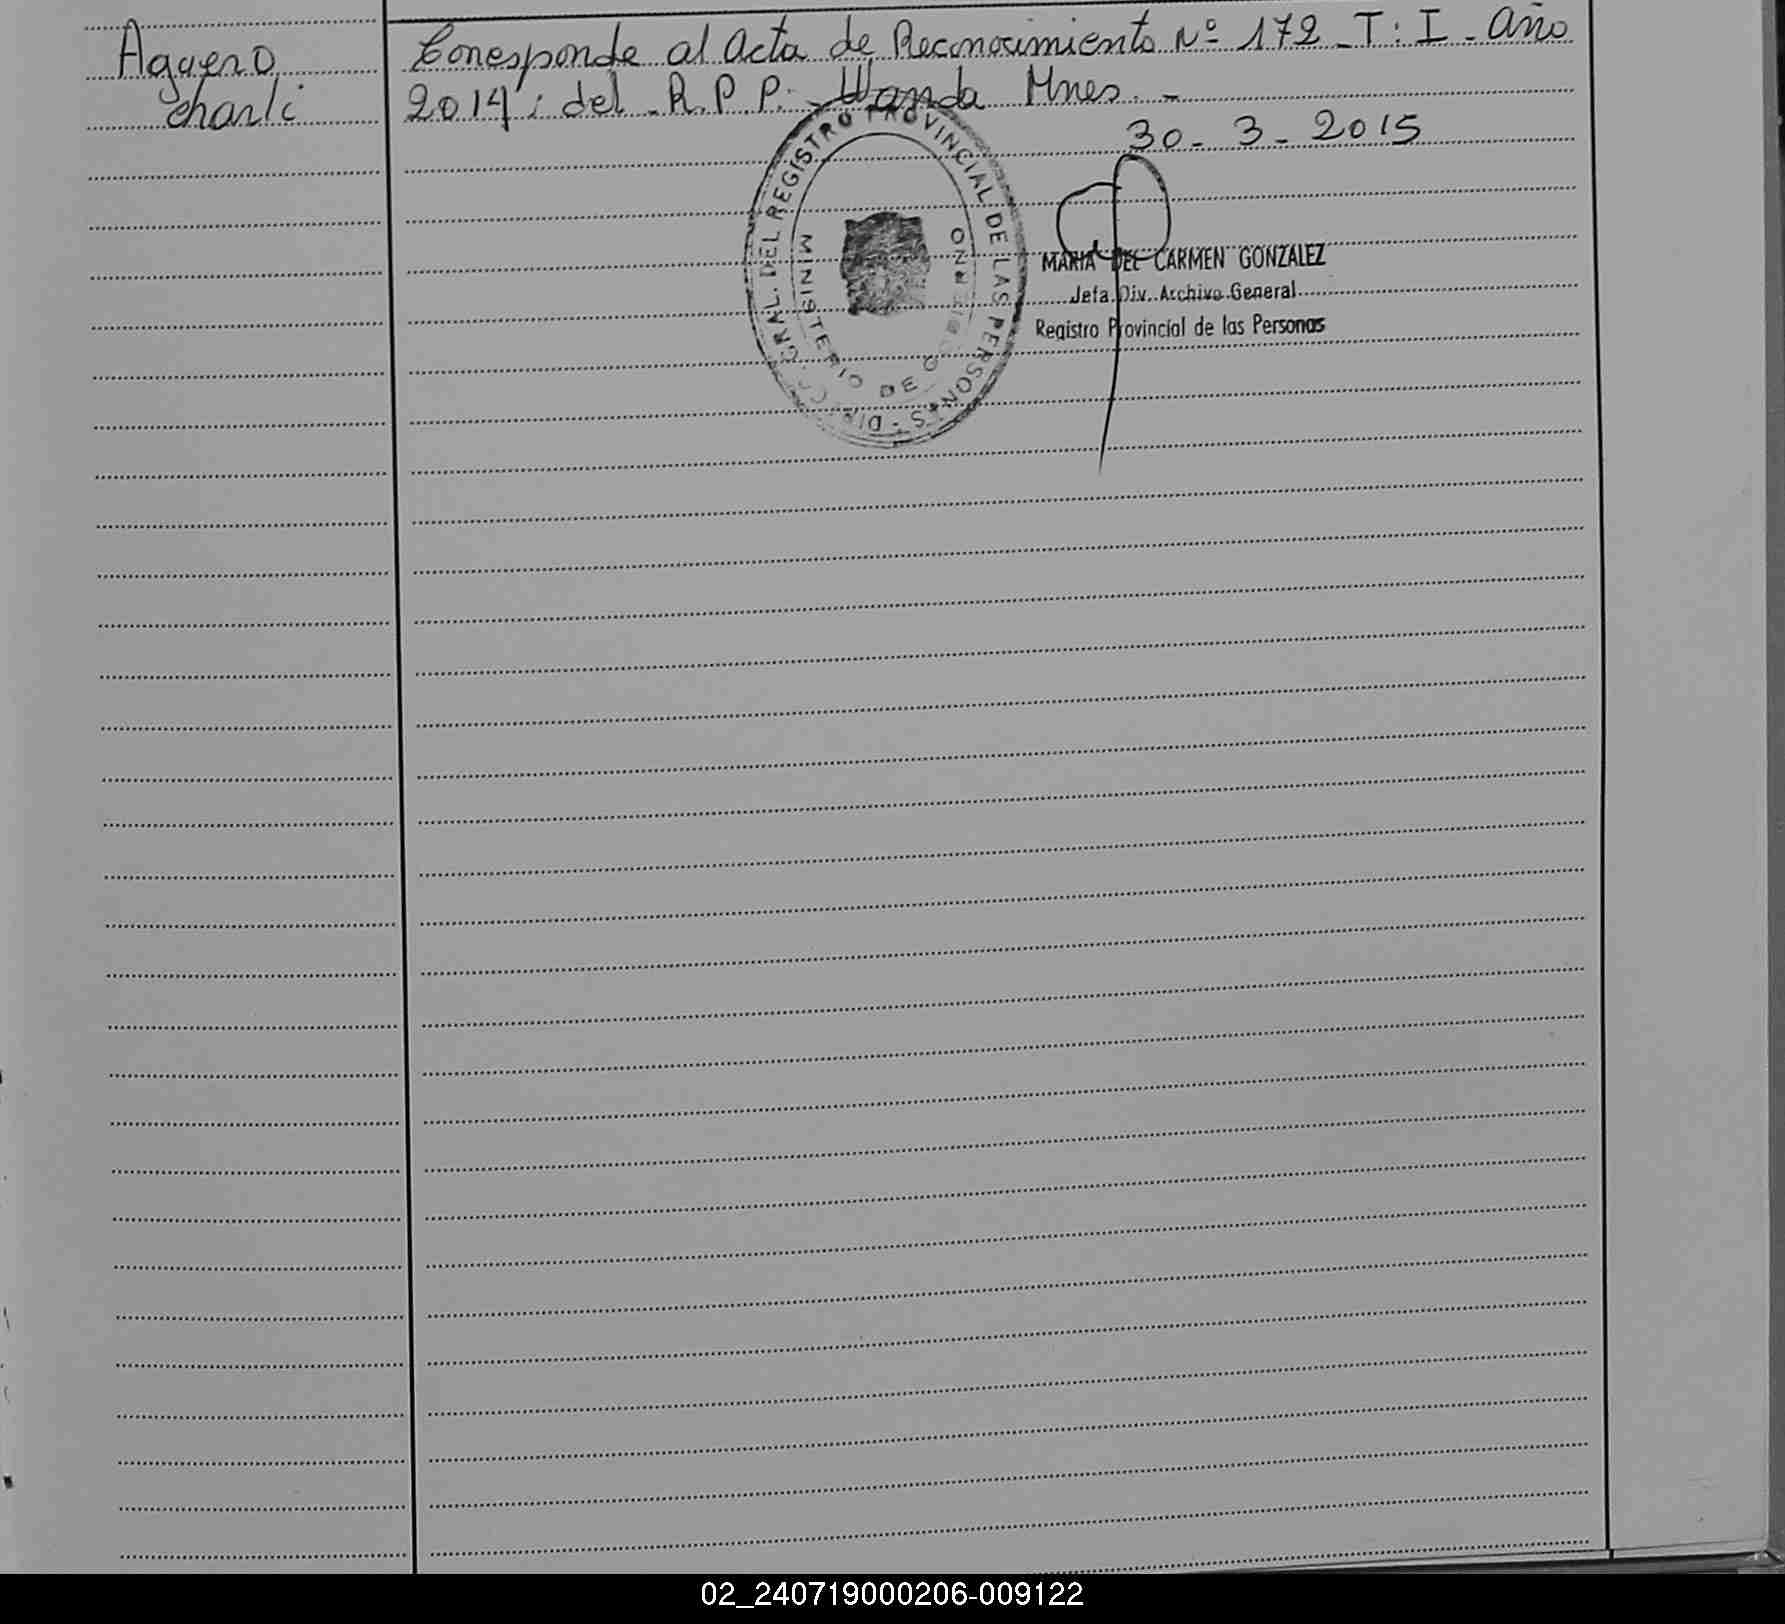 Aguero
charli
Corresponde al acta de Reconocimiento Nº 172 - T: I - año
2014; del R.P.P. Wanda Mnes. -
30 - 3 - 2015
DIREC. GRAL. DEL REGISTRO PROVINCIAL DE LAS PERSONAS
MINISTERIO DE GOBIERNO
MARIA DEL CARMEN GONZALEZ
Jefa Div. Archivo General
Registro Provincial de las Personas
02_240719000206-009122